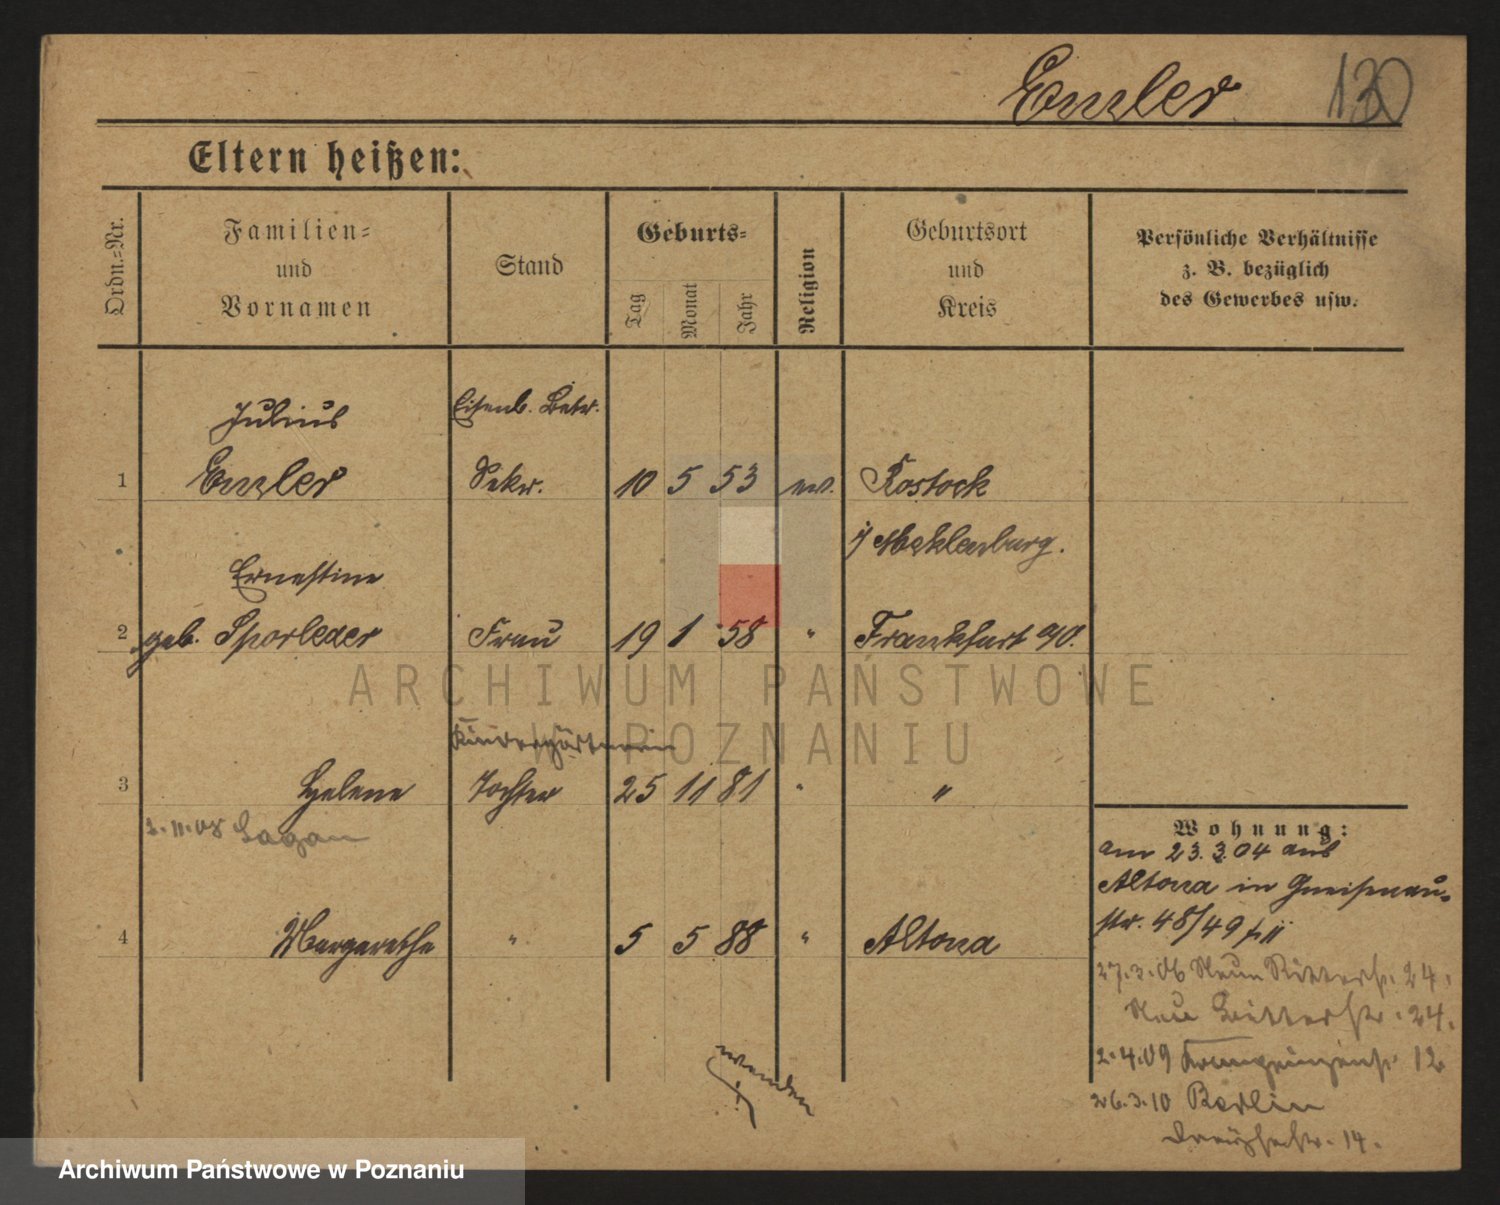 Emler 130
Eltern heißen:
Ordn.=Nr.
Familien=
und
Vornamen
Stand
Geburts=
Tag
Monat
Jahr
Religion
Geburtsort
und
Kreis
Persönliche Verhältnisse
z. B. bezüglich
des Gewerbes usw.
Julius Eisenb. Betr.
1 Emler Sekr. 10 5 53 ev. Rostock
i/ Mecklenburg.
Ernestine
2 geb. Sporleder Frau 19 1 58 " Frankfurt a/O.
Kindergärtnerin
3 Helene Tochter 25 11 81 " "
2.11.08 Sagan
4 Margarethe " 5 5 88 " Altona
wenden
Wohnung:
am 23.3.04 aus
Altona in Gneisenau-
str. 48/49 p II
27.3.06 Neue Ritterstr. 24.
Neue Ritterstr. 24.
2.4.09 Kronprinzenstr. 12
26.3.10 Berlin
14.
ARCHIWUM PAŃSTWOWE
W POZNANIU
Archiwum Państwowe w Poznaniu